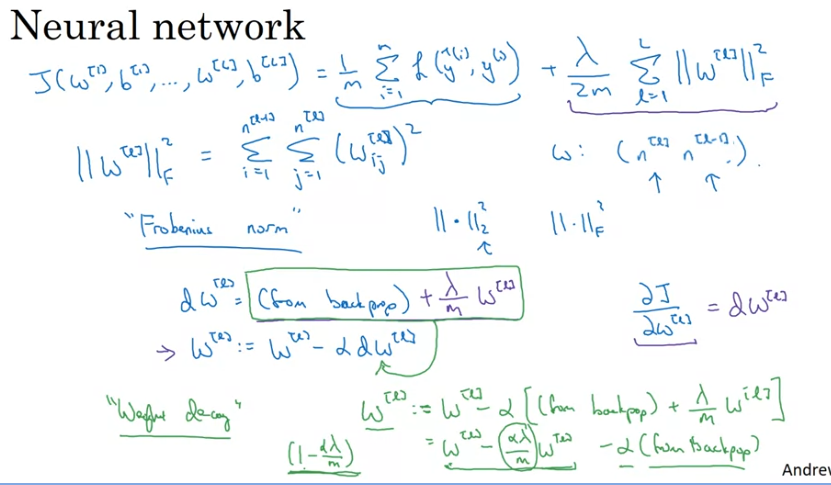 Neural network
J(w^[1], b^[1], ..., w^[L], b^[L]) = 1/m Σ_{i=1}^{m} L(ŷ^(i), y^(i)) + λ/2m Σ_{l=1}^{L} ||w^[l]||²_F
||w^[l]||²_F = Σ_{i=1}^{n^[l-1]} Σ_{j=1}^{n^[l]} (w_ij^[l])² w: (n^[l] n^[l-1]).
↑ ↑
"Frobenius norm" ||·||²_2 ||·||²_F
↑
dw^[l] = (from backprop) + λ/m w^[l] ∂J/∂w^[l] = dw^[l]
→ w^[l] := w^[l] - α dw^[l]
"Weight decay" w^[l] := w^[l] - α [(from backprop) + λ/m w^[l]]
(1 - αλ/m) = w^[l] - αλ/m w^[l] - α (from backprop)
Andrew